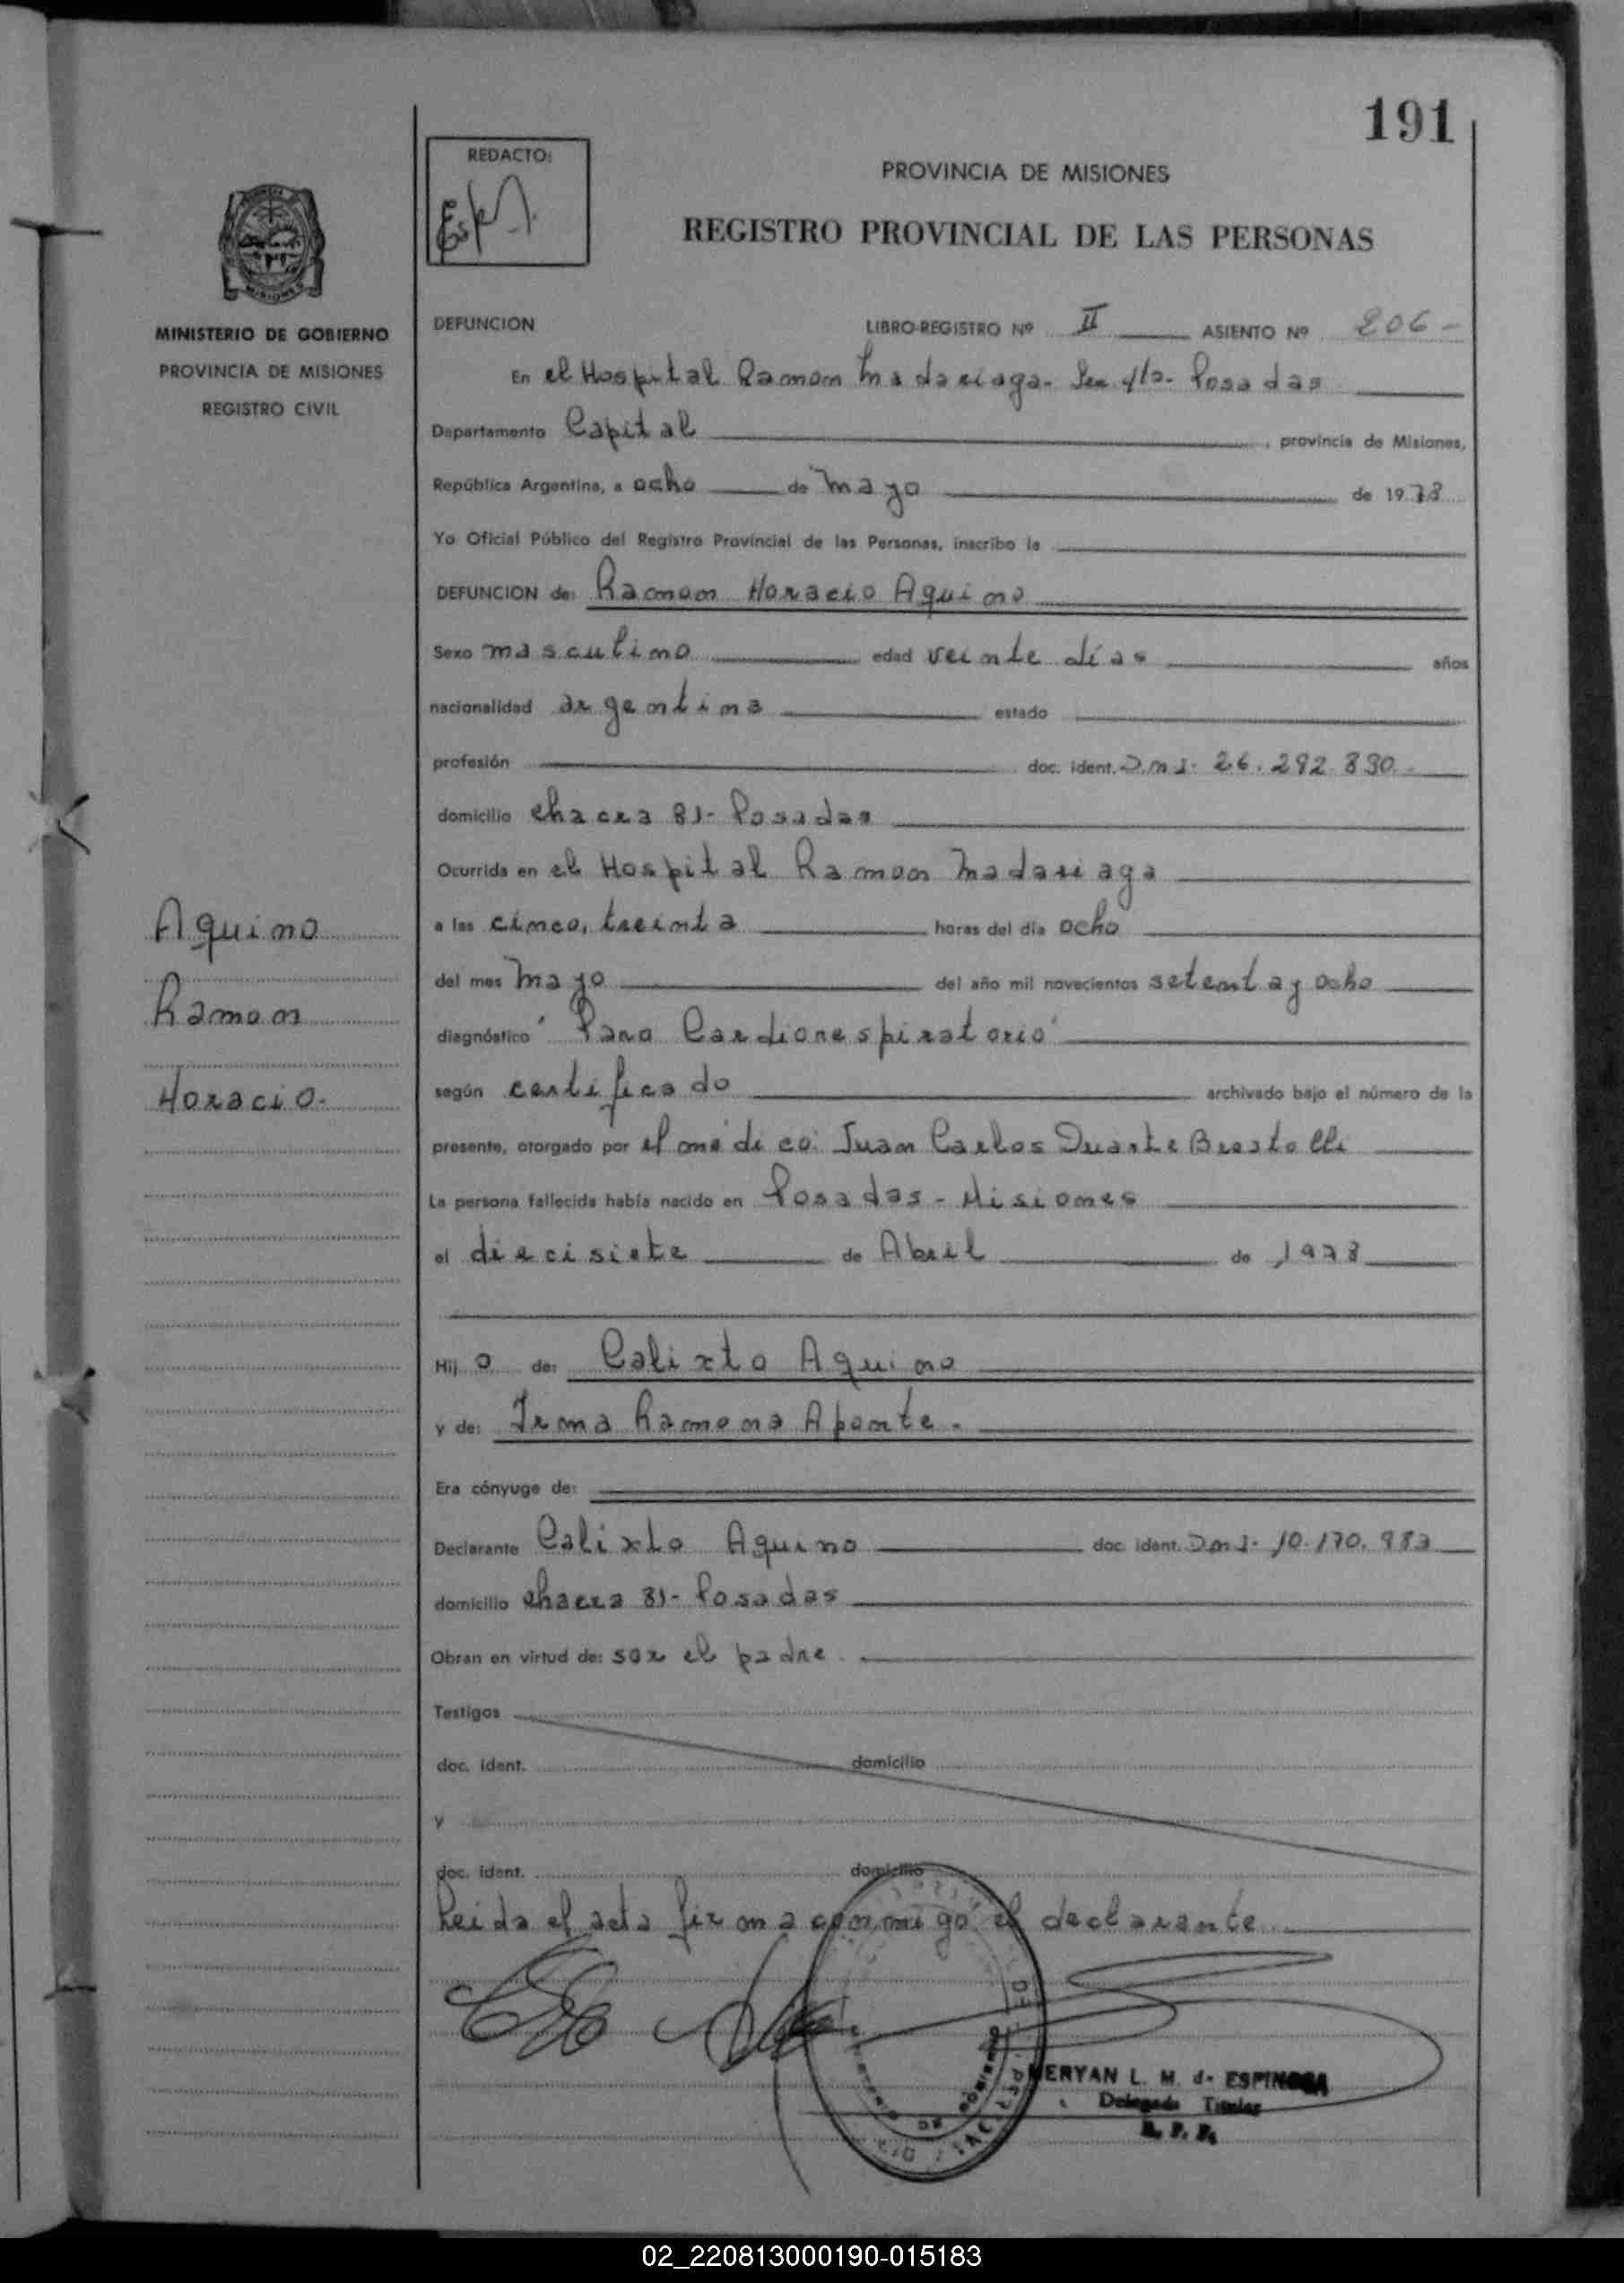 191
REDACTO:
PROVINCIA DE MISIONES
REGISTRO PROVINCIAL DE LAS PERSONAS
MISIONES
MINISTERIO DE GOBIERNO
PROVINCIA DE MISIONES
REGISTRO CIVIL
DEFUNCION LIBRO-REGISTRO Nº II ASIENTO Nº 206-
En el Hospital Ramon Madariaga- Sec 4ta- Posadas
Departamento Capital , provincia de Misiones,
República Argentina, a ocho de mayo de 1978
Yo Oficial Público del Registro Provincial de las Personas, inscribo la
DEFUNCION de: Ramon Horacio Aquino
Sexo masculino edad veinte días años
nacionalidad argentina estado
profesión doc. ident. D.N.I. 26.292.890.-
domicilio chacra 81- Posadas
Ocurrida en el Hospital Ramon Madariaga
Aquino
a las cinco, treinta horas del día ocho
del mes mayo del año mil novecientos setenta y ocho
Ramon
diagnóstico "Paro Cardiorespiratorio"
Horacio.
según certificado archivado bajo el número de la
presente, otorgado por el médico: Juan Carlos Duarte
La persona fallecida había nacido en Posadas - Misiones
el diecisiete de Abril de 1978
Hij o de: Calixto Aquino
y de: Irma Ramona Aponte.-
Era cónyuge de:
Declarante Calixto Aquino doc. ident. DNI- 10.170.983
domicilio chacra 81- Posadas
Obran en virtud de: ser el padre.
Testigos
doc. ident. domicilio
y
doc. ident. domicilio
Leida el acta firma conmigo el declarante
MERYAN L. M. d- ESPINOSA
Delegada Titular
R. P. P.
02_220813000190-015183